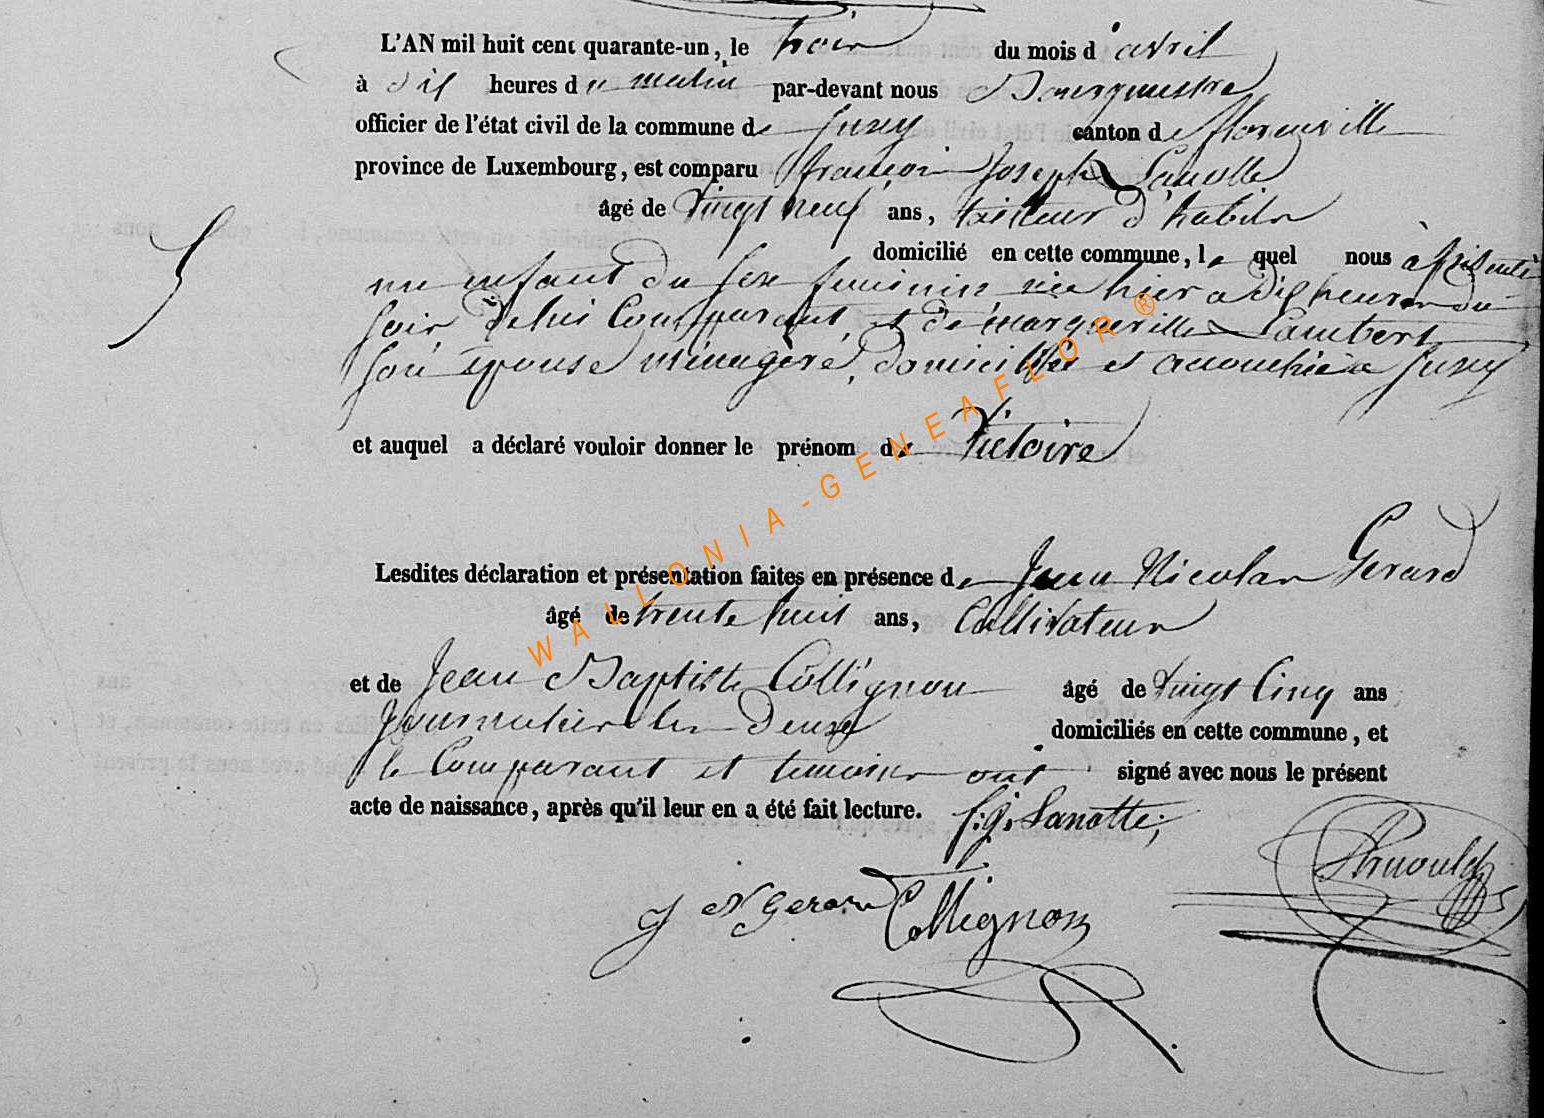 L'AN mil huit cent quarante-un, le trois du mois d'avril
à dix heures du matin par-devant nous Bourgmestre
officier de l'état civil de la commune de Suxy canton de florenville
province de Luxembourg, est comparu françois Joseph Lanotte
âgé de vingt neuf ans, tailleur d'habits
domicilié en cette commune, lequel nous à présenté
un enfant du sexe feminin née hier a dix heures du
soir de lui Comparant et de marguerille Lambert
son épouse ménagère, domiciliée et accouchée a Suxy
et auquel a déclaré vouloir donner le prénom de Victoire
Lesdites déclaration et présentation faites en présence de Jean Nicolas Gerard
âgé de trente huit ans, Cultivateur
et de Jean Baptiste Collignon âgé de vingt Cinq ans
Journalier les deux domiciliés en cette commune, et
le Comparant et temoins ont signé avec nous le présent
acte de naissance, après qu'il leur en a été fait lecture. f.j. Lanotte;
J N Gerard Collignon
WALLONIA-GENEAFLOR®